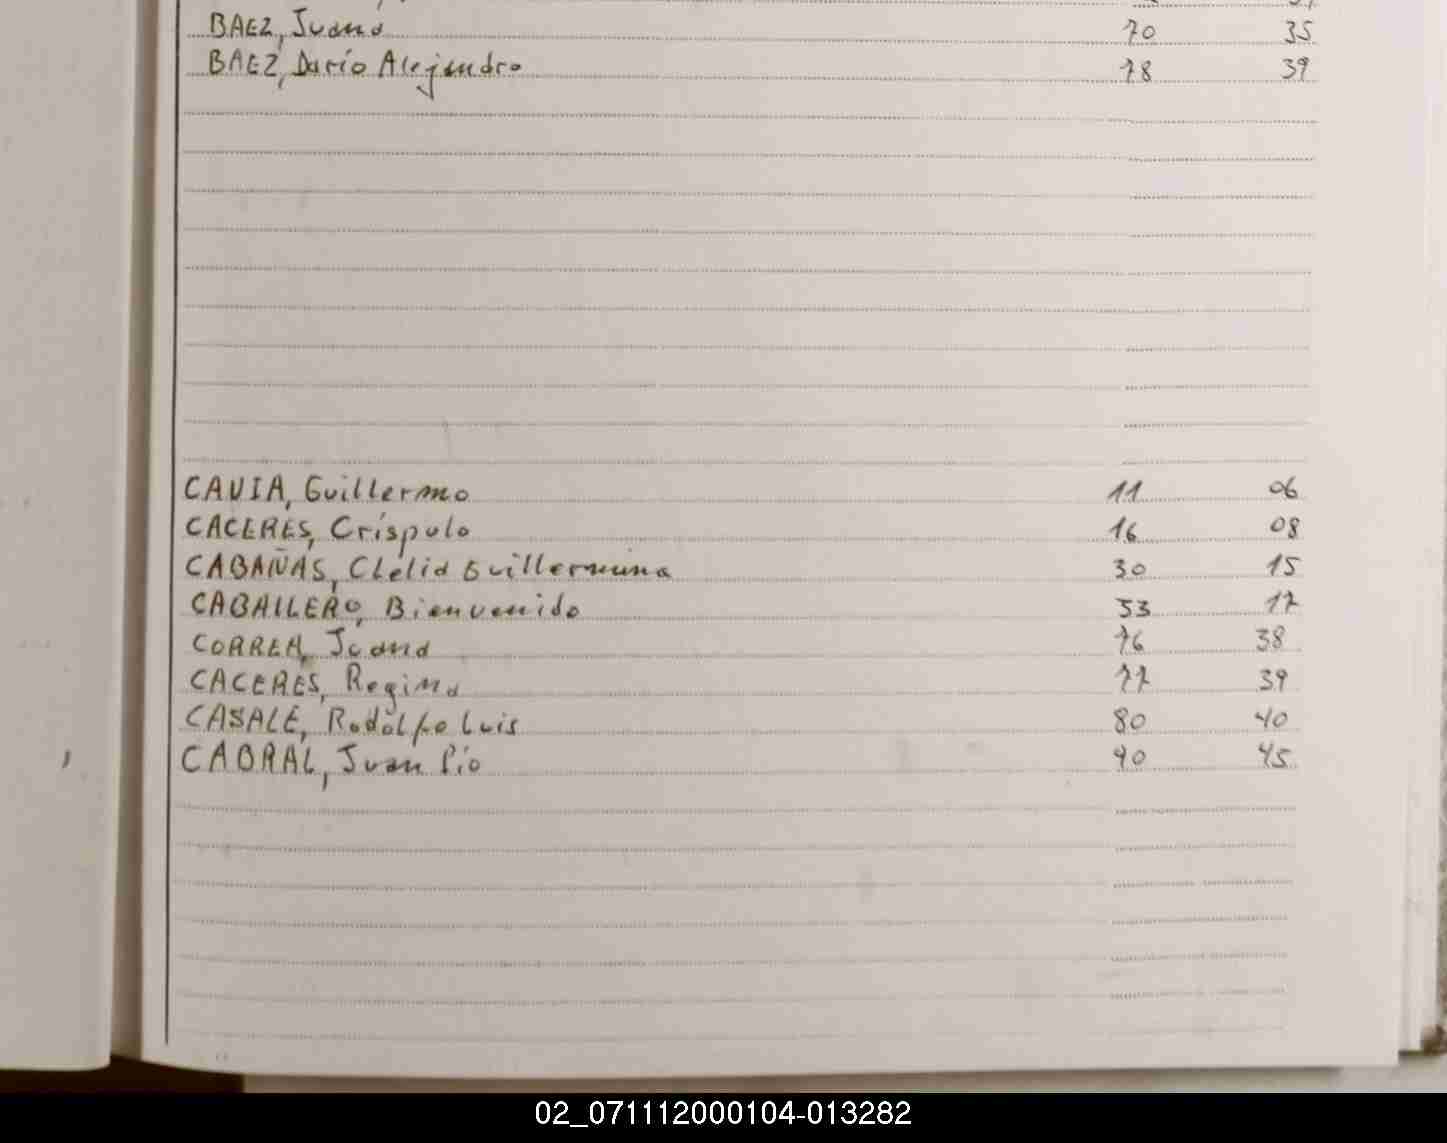 BAEZ, Juana 70 35
BAEZ, Darío Alejandro 78 39
CAVIA, Guillermo 11 06
CACERES, Críspulo 16 08
CABAÑAS, Clelia Guillermina 30 15
CABALLERO, Bienvenido 33 17
CORREA, Juana 76 38
CACERES, Regina 77 39
CASALE, Rodolfo Luis 80 40
CABRAL, Juan Pío 90 45
02_071112000104-013282